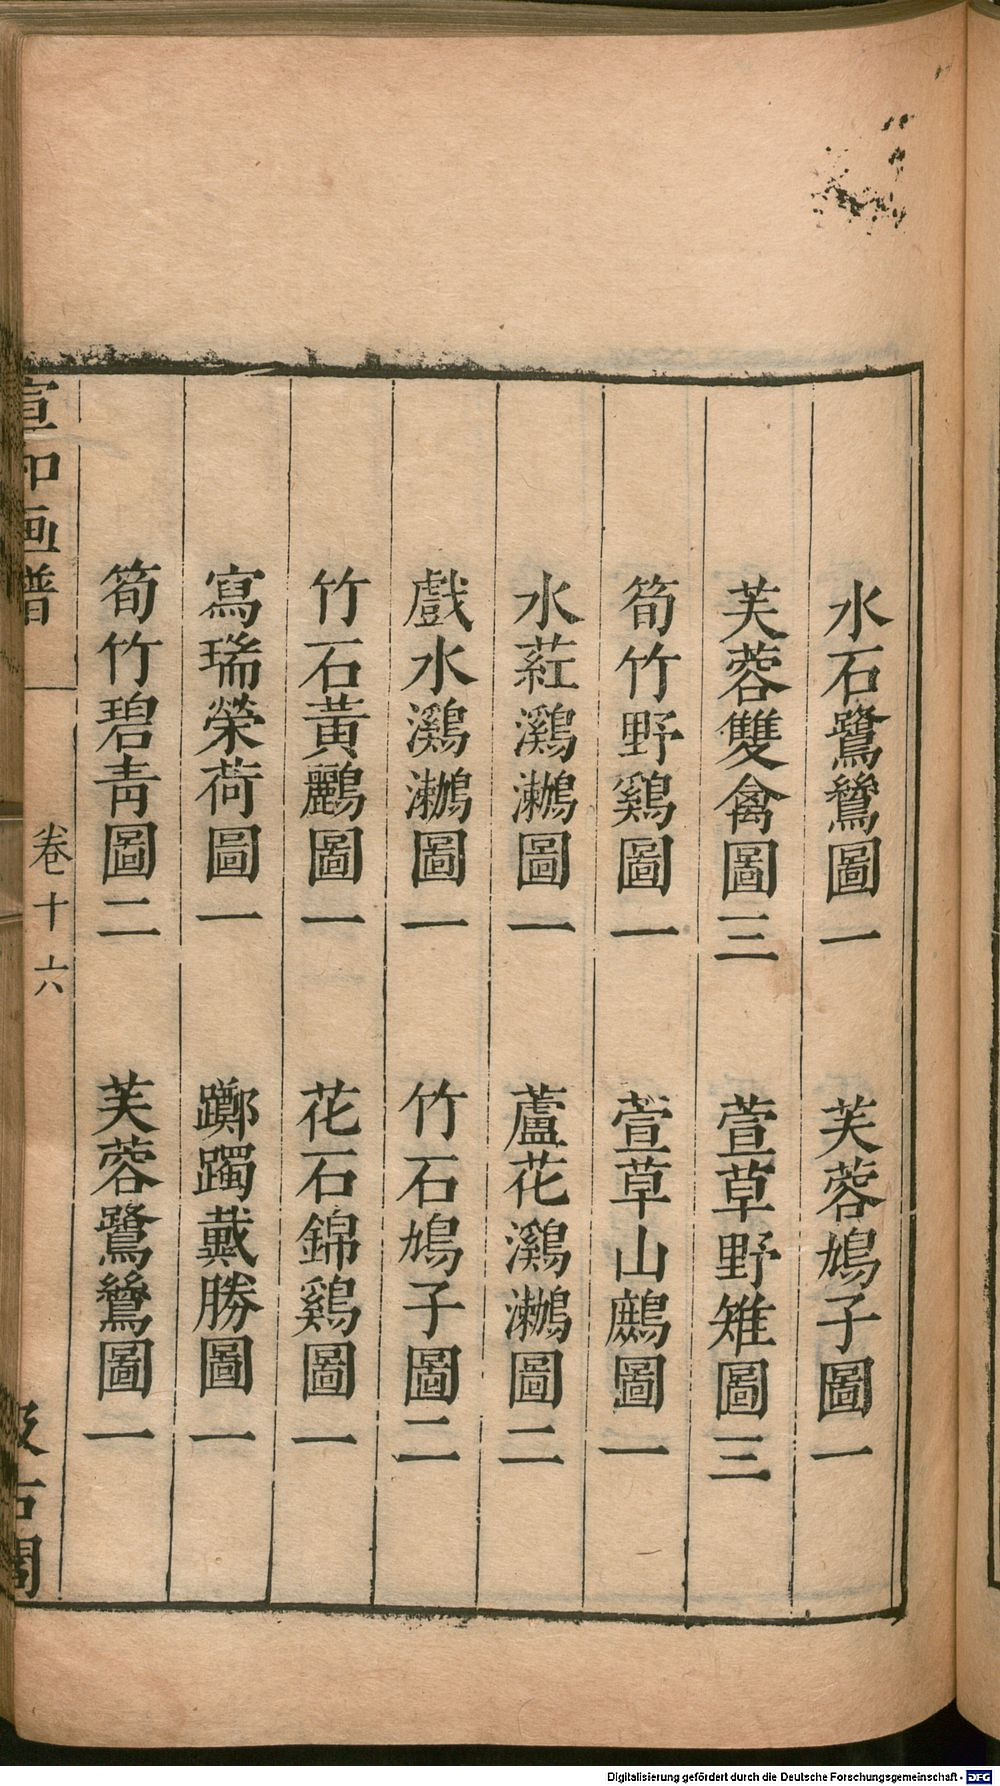 水石鷺鷥圖一　芙蓉鳩子圖一
芙蓉雙禽圖三　萱草野雉圖三
筍竹野鷄圖一　萱草山鷓圖一
水葒鸂鷘圖一　蘆花鸂鷘圖二
戲水鸂鷘圖一　竹石鳩子圖二
竹石黃鸝圖一　花石錦鷄圖一
寫瑞榮荷圖一　躑躅戴勝圖一
筍竹碧青圖二　芙蓉鷺鷥圖一
宣和画譜　卷十六　汲古閣
Digitalisierung gefördert durch die Deutsche Forschungsgemeinschaft - DFG